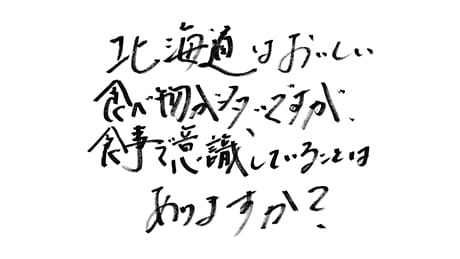 北海道はおいしい
食べ物が多いですが、
食事で意識していることは
ありますか？